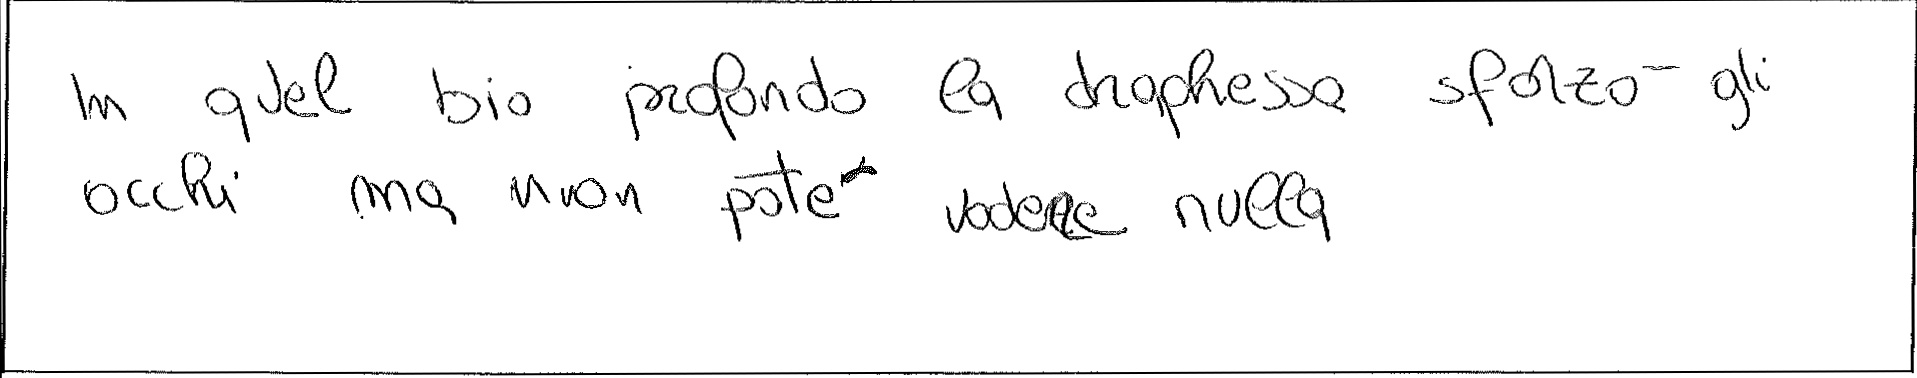 In quel bio profondo la draghessa sforzò gli
occhi ma non potè vedere nulla